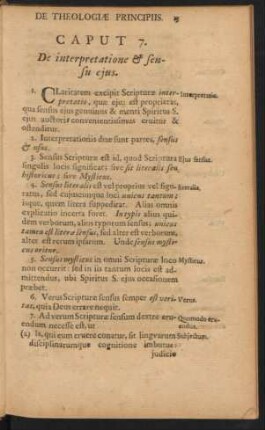 DE THEOLOGIÆ PRINCIPIIS.
CAPUT 7.
De interpretatione & sen-
su ejus.
1. CLaritatem excipit Scripturæ inter- Interpretatio.
pretatio, quæ ejus est proprietas,
qua sensus ejus genuinus & menti Spiritus S.
ejus auctoris convenientissimus eruitur &
ostenditur.
2. Interpretationis duæ sunt partes, sensus
& usus.
3. Sensus Scripturæ est id, quod Scriptura Ejus sensus.
singulis locis significat; sive sit literalis seu
historicus; sive Mysticus.
4. Sensus literalis est vel proprietas vel figu- Literalis.
ratus, sed cujuscunque loci unicus tantum;
isque, quem literæ suppeditat. Alias omnis
explicatio incerta foret. In typis alius qui-
dem verborum, alius typorum sensus: unicus
tamen est literæ sensus, sed alter est verborum,
alter est rerum ipsarum. Unde sensus mysti-
cus oritur.
5. Sensus mysticus in omni Scripturæ loco Mysticus.
non occurrit: sed in iis tantum locis est ad-
mittendus, ubi Spiritus S. ejus occasionem
præbet.
6. Verus Scripturæ sensus semper est veri- Verus.
tas, quia Deus errare nequit.
7. Ad verum Scripturæ sensum dextre eru- Quomodo eru-
endum necesse est, ut
(1) Is, qui eum eruere conatur, sit linguarum Subjectum.
disciplinarumque cognitione imbutus
judicio